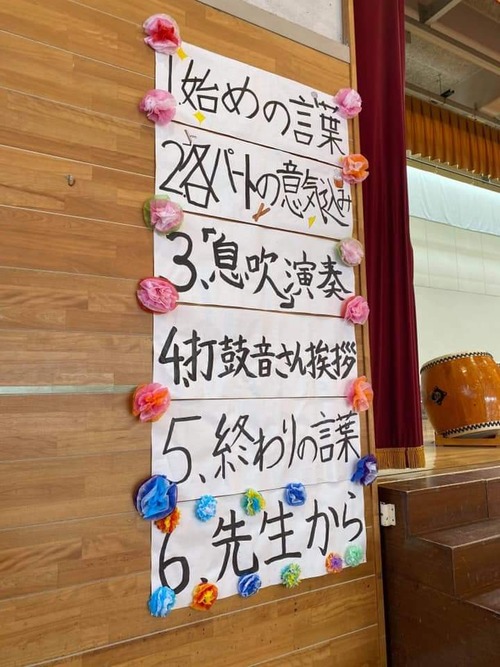 1.始めの言葉
2.各パートの意気込み
3、「息吹」演奏
4、打鼓音さん挨拶
5、終わりの言葉
6、先生から